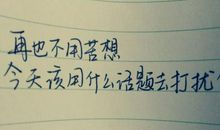 再也不用苦想
今天该用什么话题去打扰